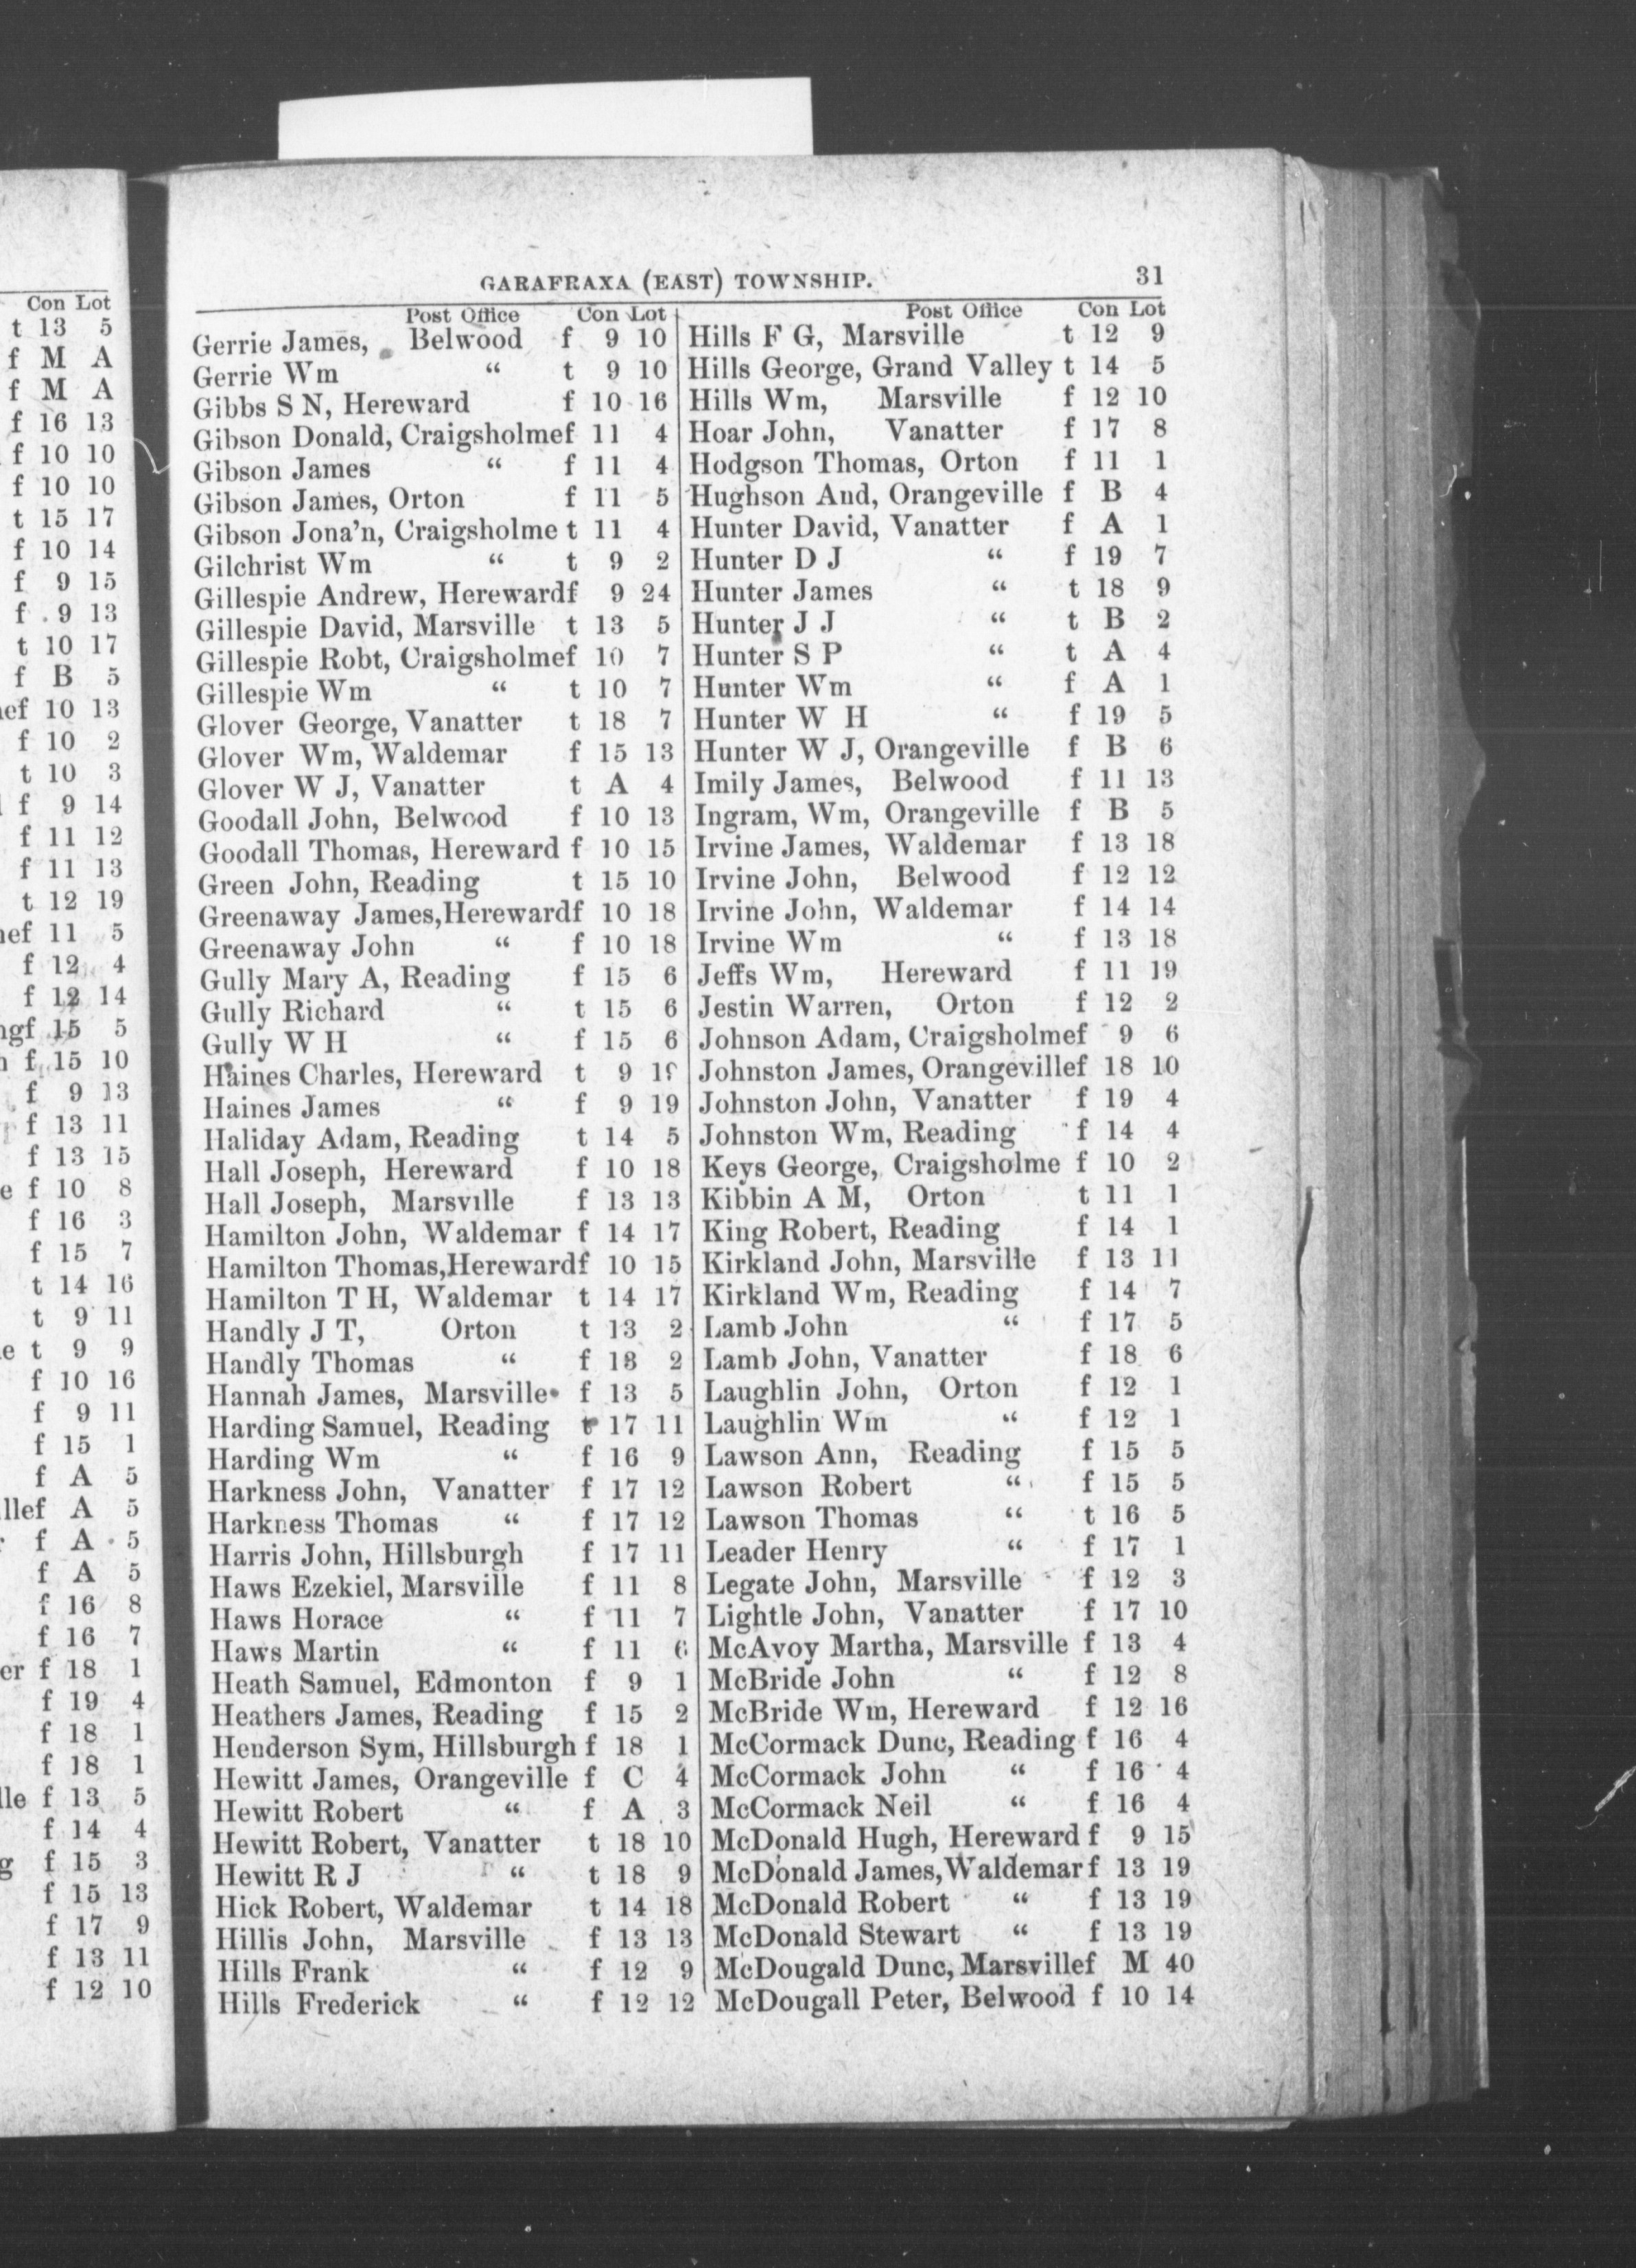 Con Lot
t 13 5
f M A
f M A
f 16 13
f 10 10
f 10 10
t 15 17
f 10 14
f 9 15
f 9 13
t 10 17
f B 5
ef 10 13
f 10 2
t 10 3
f 9 14
f 11 12
f 11 13
t 12 19
ef 11 5
f 12 4
f 12 14
gf 15 5
f 15 10
f 9 13
f 13 11
f 13 15
e f 10 8
f 16 3
f 15 7
t 14 16
t 9 11
e t 9 9
f 10 16
f 9 11
f 15 1
f A 5
llef A 5
f A 5
f A 5
f 16 8
f 16 7
er f 18 1
f 19 4
f 18 1
f 18 1
lle f 13 5
f 14 4
g f 15 3
f 15 13
f 17 9
f 13 11
f 12 10
GARAFRAXA (EAST) TOWNSHIP. 31
Post Office Con Lot
Gerrie James, Belwood f 9 10
Gerrie Wm “ t 9 10
Gibbs S N, Hereward f 10 16
Gibson Donald, Craigsholmef 11 4
Gibson James “ f 11 4
Gibson James, Orton f 11 5
Gibson Jona’n, Craigsholme t 11 4
Gilchrist Wm “ t 9 2
Gillespie Andrew, Herewardf 9 24
Gillespie David, Marsville t 13 5
Gillespie Robt, Craigsholmef 10 7
Gillespie Wm “ t 10 7
Glover George, Vanatter t 18 7
Glover Wm, Waldemar f 15 13
Glover W J, Vanatter t A 4
Goodall John, Belwood f 10 13
Goodall Thomas, Hereward f 10 15
Green John, Reading t 15 10
Greenaway James,Herewardf 10 18
Greenaway John “ f 10 18
Gully Mary A, Reading f 15 6
Gully Richard “ t 15 6
Gully W H “ f 15 6
Haines Charles, Hereward t 9
Haines James “ f 9 19
Haliday Adam, Reading t 14 5
Hall Joseph, Hereward f 10 18
Hall Joseph, Marsville f 13 13
Hamilton John, Waldemar f 14 17
Hamilton Thomas,Herewardf 10 15
Hamilton T H, Waldemar t 14 17
Handly J T, Orton t 13 2
Handly Thomas “ f 13 2
Hannah James, Marsville f 13 5
Harding Samuel, Reading t 17 11
Harding Wm “ f 16 9
Harkness John, Vanatter f 17 12
Harkness Thomas “ f 17 12
Harris John, Hillsburgh f 17 11
Haws Ezekiel, Marsville f 11 8
Haws Horace “ f 11 7
Haws Martin “ f 11 6
Heath Samuel, Edmonton f 9 1
Heathers James, Reading f 15 2
Henderson Sym, Hillsburgh f 18 1
Hewitt James, Orangeville f C 4
Hewitt Robert “ f A 3
Hewitt Robert, Vanatter t 18 10
Hewitt R J “ t 18 9
Hick Robert, Waldemar t 14 18
Hillis John, Marsville f 13 13
Hills Frank “ f 12 9
Hills Frederick “ f 12 12
Post Office Con Lot
Hills F G, Marsville t 12 9
Hills George, Grand Valley t 14 5
Hills Wm, Marsville f 12 10
Hoar John, Vanatter f 17 8
Hodgson Thomas, Orton f 11 1
Hughson And, Orangeville f B 4
Hunter David, Vanatter f A 1
Hunter D J “ f 19 7
Hunter James “ t 18 9
Hunter J J “ t B 2
Hunter S P “ t A 4
Hunter Wm “ f A 1
Hunter W H “ f 19 5
Hunter W J, Orangeville f B 6
Imily James, Belwood f 11 13
Ingram, Wm, Orangeville f B 5
Irvine James, Waldemar f 13 18
Irvine John, Belwood f 12 12
Irvine John, Waldemar f 14 14
Irvine Wm “ f 13 18
Jeffs Wm, Hereward f 11 19
Jestin Warren, Orton f 12 2
Johnson Adam, Craigsholmef 9 6
Johnston James, Orangevillef 18 10
Johnston John, Vanatter f 19 4
Johnston Wm, Reading f 14 4
Keys George, Craigsholme f 10 2
Kibbin A M, Orton t 11 1
King Robert, Reading f 14 1
Kirkland John, Marsville f 13 11
Kirkland Wm, Reading f 14 7
Lamb John “ f 17 5
Lamb John, Vanatter f 18 6
Laughlin John, Orton f 12 1
Laughlin Wm “ f 12 1
Lawson Ann, Reading f 15 5
Lawson Robert “ f 15 5
Lawson Thomas “ t 16 5
Leader Henry “ f 17 1
Legate John, Marsville f 12 3
Lightle John, Vanatter f 17 10
McAvoy Martha, Marsville f 13 4
McBride John “ f 12 8
McBride Wm, Hereward f 12 16
McCormack Dunc, Reading f 16 4
McCormack John “ f 16 4
McCormack Neil “ f 16 4
McDonald Hugh, Hereward f 9 15
McDonald James,Waldemar f 13 19
McDonald Robert “ f 13 19
McDonald Stewart “ f 13 19
McDougald Dunc, Marsvillef M 40
McDougall Peter, Belwood f 10 14